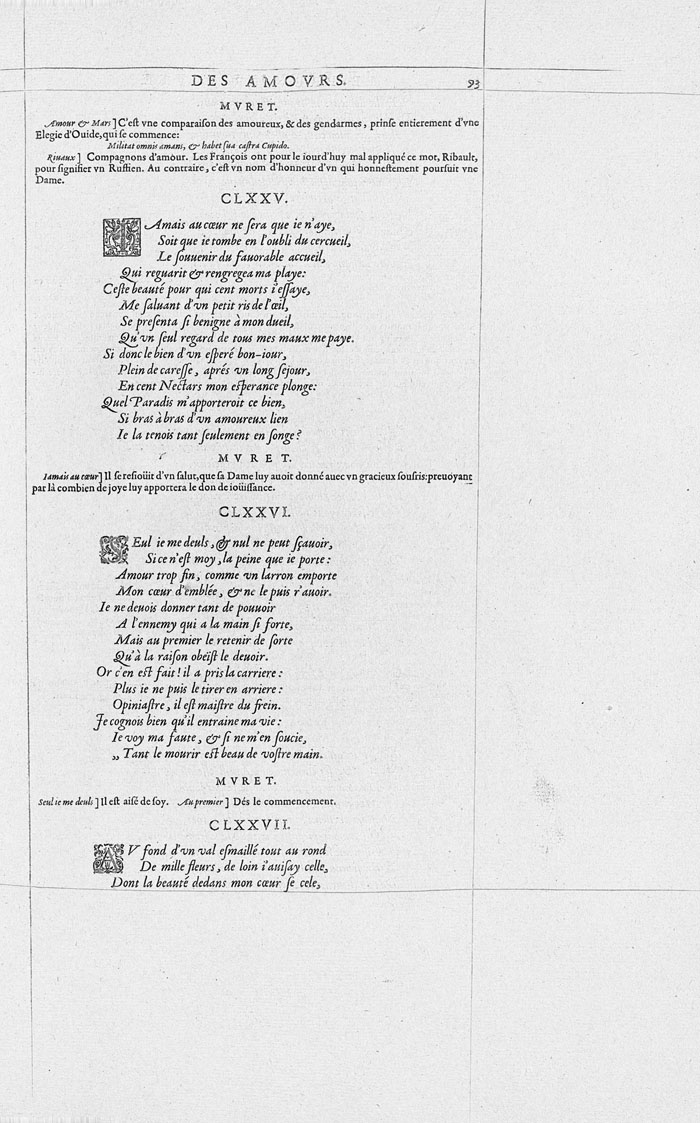 DES AMOVRS. 93
MVRET.
Amour & Mars] C'eſt vne comparaiſon des amoureux, & des gendarmes, prinſe entierement d'vne
Elegie d'Ouide, qui ſe commence:
Militat omnis amans, & habet ſua caſtra Cupido.
Riuaux] Compagnons d'amour. Les François ont pour le iourd'huy mal appliqué ce mot, Ribault,
pour ſignifier vn Ruffien. Au contraire, c'eſt vn nom d'honneur d'vn qui honneſtement pourſuit vne
Dame.
CLXXV.
IAmais au cœur ne ſera que ie n'aye,
Soit que ie tombe en l'oubli du cercueil,
Le ſouuenir du fauorable accueil,
Qui reguarit & rengregea ma playe:
Ceſte beauté pour qui cent morts i'eſſaye,
Me ſaluant d'vn petit ris de l'œil,
Se preſenta ſi benigne à mon dueil,
Qu'vn ſeul regard de tous mes maux me paye.
Si donc le bien d'vn eſperé bon-iour,
Plein de careſſe, aprés vn long ſejour,
En cent Nectars mon eſperance plonge:
Quel Paradis m'apporteroit ce bien,
Si bras à bras d'vn amoureux lien
Ie la tenois tant ſeulement en ſonge?
MVRET.
Iamais au cœur] Il ſe reſioüit d'vn ſalut, que ſa Dame luy auoit donné auec vn gracieux ſouſris: preuoyant
par là combien de joye luy apportera le don de ioüiſſance.
CLXXVI.
SEul ie me deuls, & nul ne peut ſçauoir,
Si ce n'eſt moy, la peine que ie porte:
Amour trop fin, comme vn larron emporte
Mon cœur d'emblée, & ne le puis r'auoir.
Ie ne deuois donner tant de pouuoir
A l'ennemy qui a la main ſi forte,
Mais au premier le retenir de ſorte
Qu'à la raiſon obeïſt le deuoir.
Or c'en eſt fait! il a pris la carriere:
Plus ie ne puis le tirer en arriere:
Opiniaſtre, il eſt maiſtre du frein.
Je cognois bien qu'il entraine ma vie:
Ie voy ma faute, & ſi ne m'en ſoucie,
„ Tant le mourir eſt beau de voſtre main.
MVRET.
Seul ie me deuls] Il eſt aiſé de ſoy. Au premier] Dés le commencement.
CLXXVII.
AV fond d'vn val eſmaillé tout au rond
De mille fleurs, de loin i'auiſay celle,
Dont la beauté dedans mon cœur ſe cele,